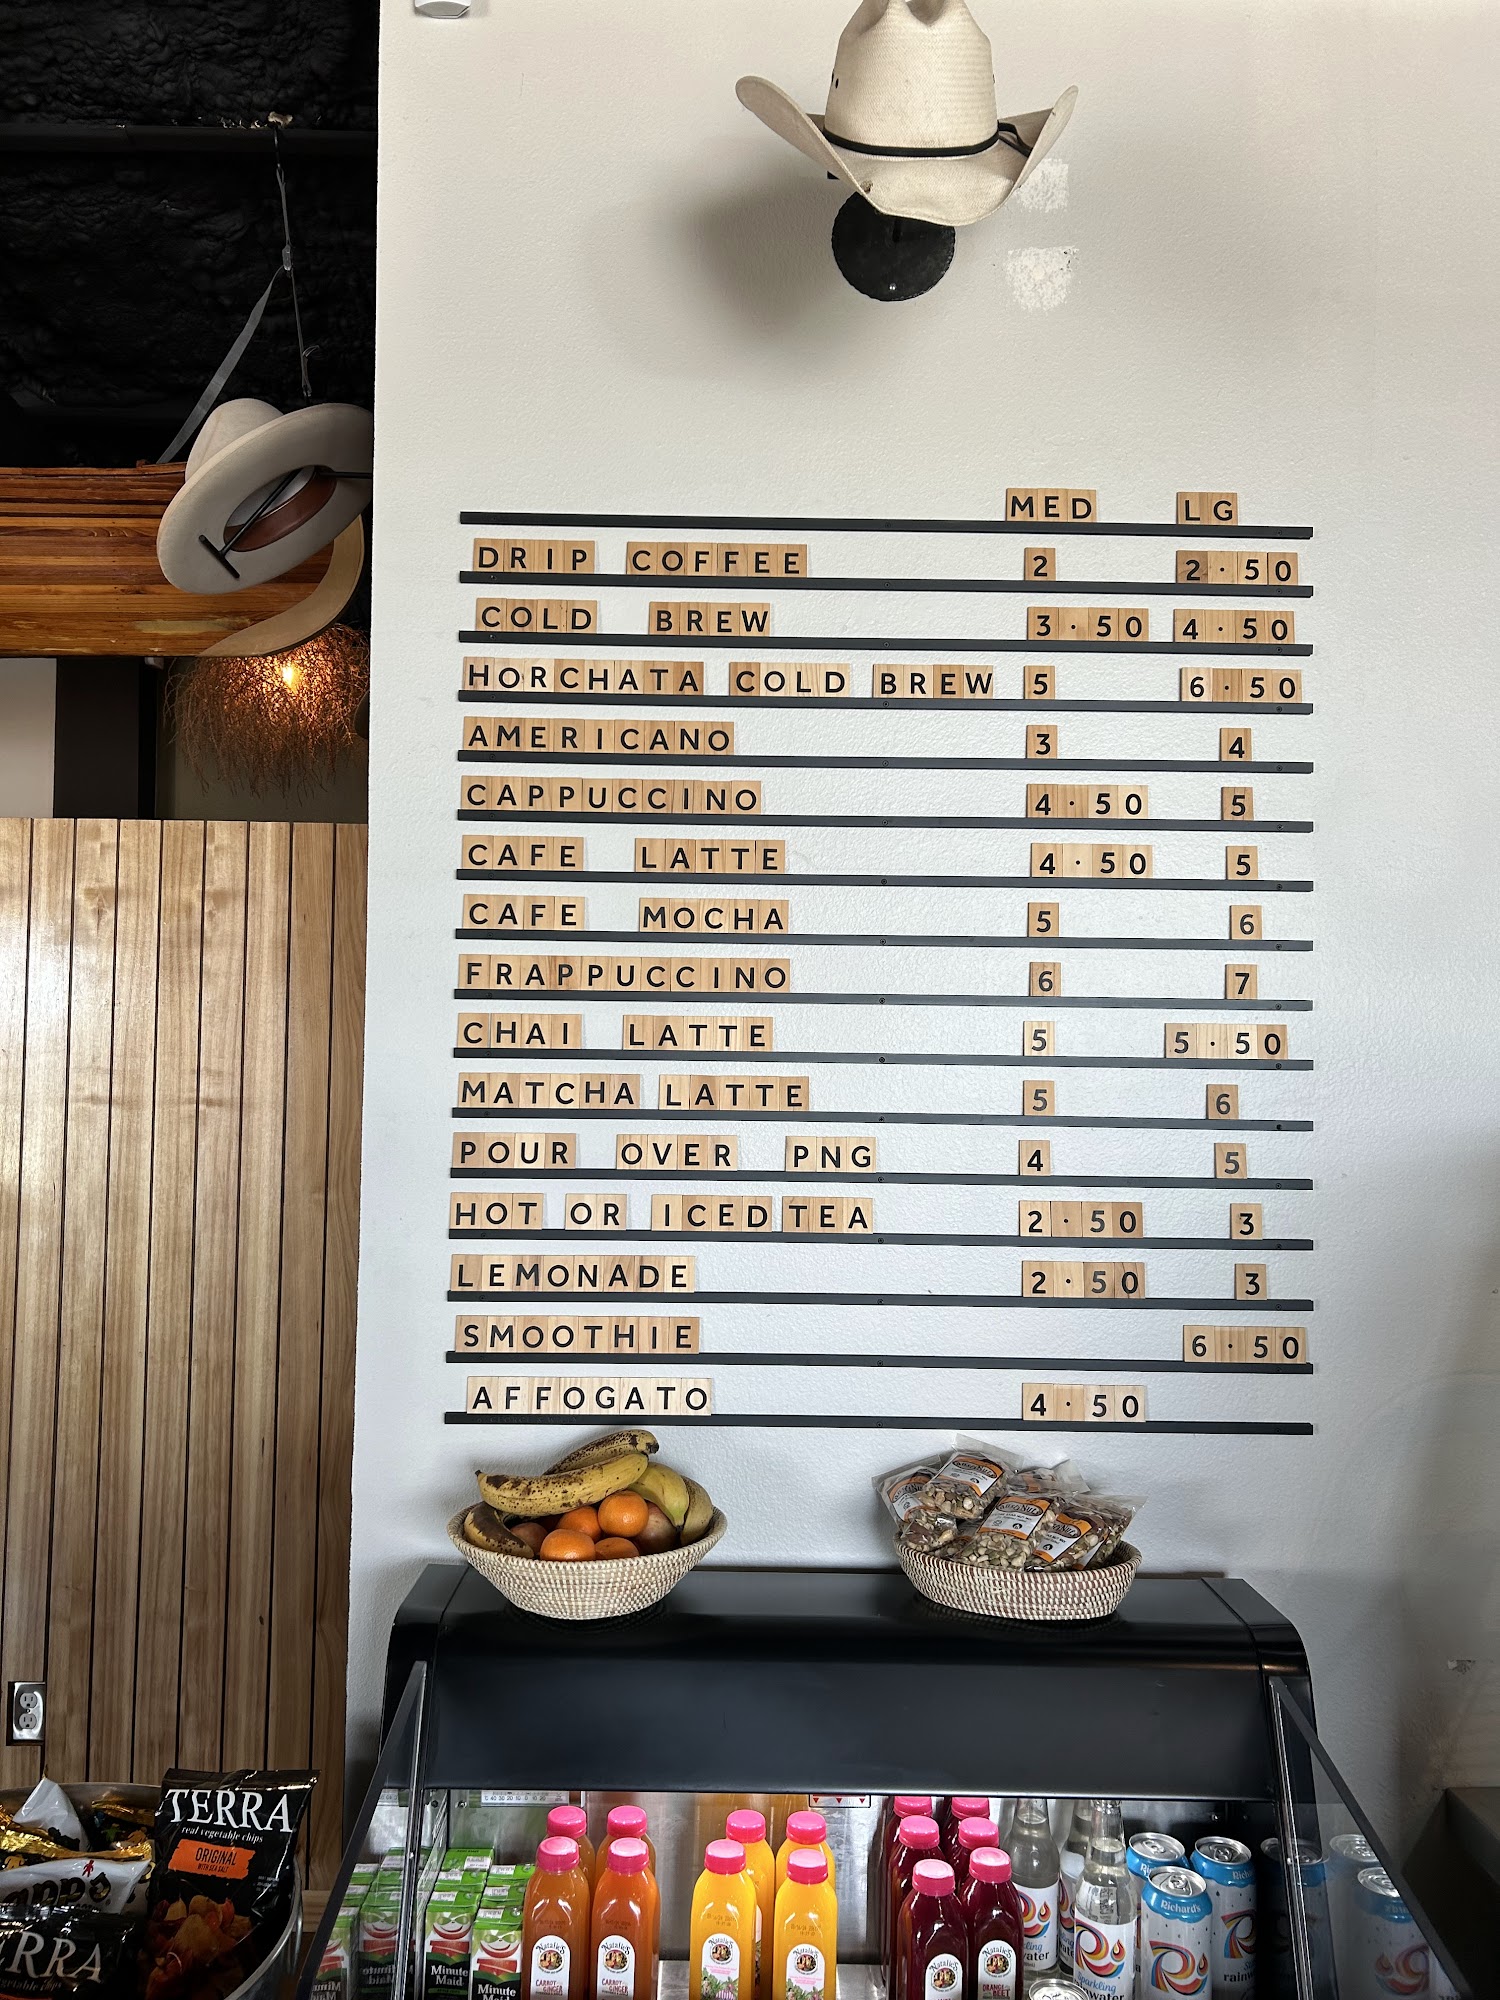 MED LG
DRIP COFFEE 2 2·50
COLD BREW 3·50 4·50
HORCHATA COLD BREW 5 6·50
AMERICANO 3 4
CAPPUCCINO 4·50 5
CAFE LATTE 4·50 5
CAFE MOCHA 5 6
FRAPPUCCINO 6 7
CHAI LATTE 5 5·50
MATCHA LATTE 5 6
POUR OVER PNG 4 5
HOT OR ICED TEA 2·50 3
LEMONADE 2·50 3
SMOOTHIE 6·50
AFFOGATO 4·50
TERRA
real vegetable chips
ORIGINAL
WITH SEA SALT
Natalie's
CARROT
GINGER
Natalie's
CARROT
GINGER
Natalie's
Natalie's
Natalie's
Natalie's
ORANGE
BEET
Minute
Maid
Minute
Maid
Richard's
Richard's
Sparkling